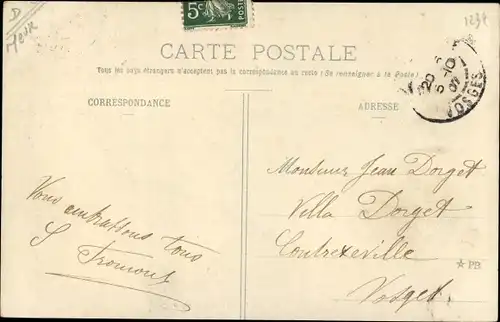 D
Meuse
5c
1232
CARTE POSTALE
Tous les pays étrangers n'acceptent pas la correspondance au recto (Se renseigner à la Poste)
CORRESPONDANCE
ADRESSE
20
5-10
07
VOSGES
Monsieur Jean Dorget
Villa Dorget
Contrexeville
Vosges.
Vous embrassons tous
S Fromont
★ PB